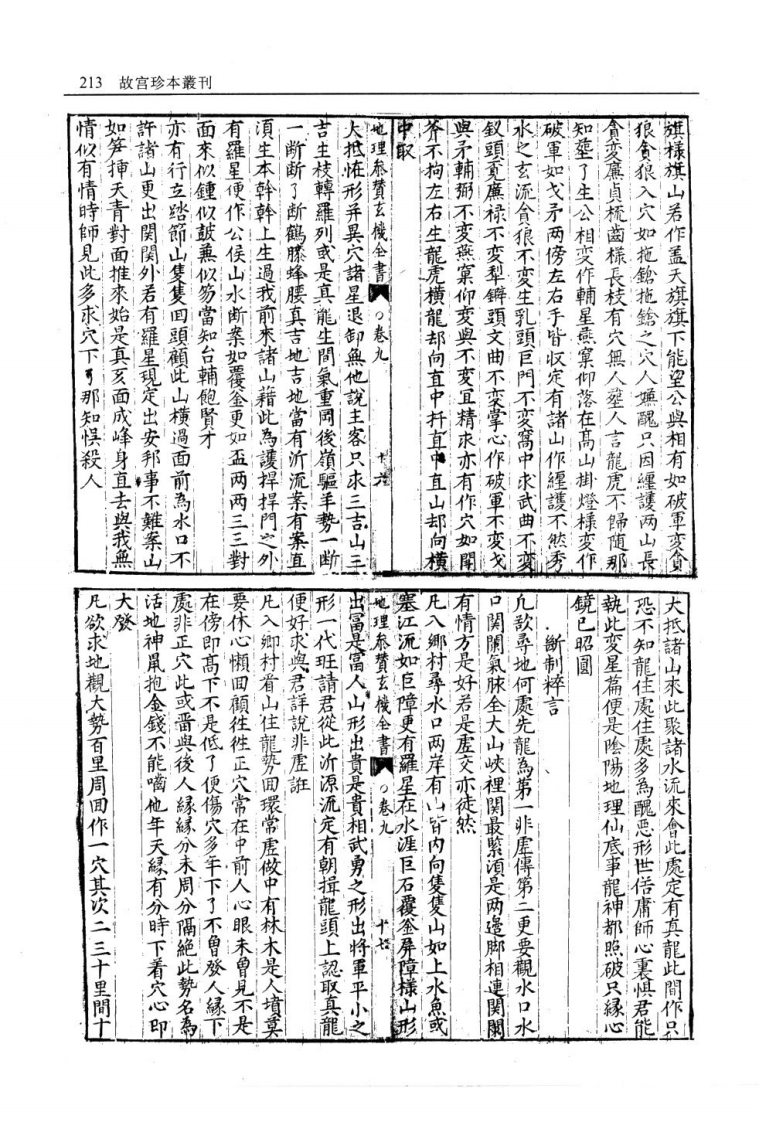 213 故宮珍本叢刊
旗樣旗山若作蓋天旗旗下能望公與相有如破軍變貪
狼貪狼入穴如拖鎗拖鎗之穴人嫌醜只因纏護两山長
貪變廉貞梳齒樣長枝有穴無人塟人言龍虎不歸随那
知塟了生公相变作輔星燕窠仰落在髙山掛燈樣变作
破軍如戈矛两傍左右手皆収定有諸山作纏護不然秀
水之玄流貪狼不变生乳頭巨門不变窩中求武曲不变
釵頭覔廉禄不变犁鐴頭文曲不变掌心作破軍不变戈
與矛輔弼不変燕窠仰变與不变宜精求亦有作穴如開
斧不拘左右生龍虎横龍却向直中扦直中直山却向横
中取
地理參贊玄機仝書 ○卷九 十六
大抵恠形并異穴諸星退卸無他說主客只求三吉山三
吉生枝轉羅列或是真龍生間氣重岡後嶺驅羊勢一断
一断断了断鶴膝蜂腰真吉地吉地當有沂流案有案直
湏生本幹幹上生過我前來諸山藉此為護捍捍門之外
有羅星便作公侯山水断案如覆釜更如盃两两三三對
面來似鍾似鼓蕪似笏當知台輔飽賢才
亦有行立踏節山隻隻囬頭顧此山横過面前為水口不
許諸山更出関関外若有羅星現定出安邦事不難案山
如笋挿天青對面推來始是真亥面成峰身直去與我無
情似有情時師見此多求穴下了那知悞殺人
大抵諸山來此聚諸水流來會此處定有真龍此間作只
恐不知龍住處住處多為醜悪形世俗庸師心裏惧君能
執此变星篇便是陰陽地理仙底事龍神都照破只縁心
鏡已昭圓
断制粹言
凢欲尋地何處先龍為第一非虚傳第二更要觀水口水
口関闌氣脉全大山峽裡関最緊湏是两邉脚相連関闌
有情方是好若是虚交亦徒然
凡入鄉村尋水口两岸有山皆内向隻隻山如上水魚或
塞江流如巨障更有羅星在水涯巨石覆釜屏障樣山形
地理參贊玄機仝書 ○卷九 十七
出冨是冨人山形出貴是貴相武勇之形出將軍平小之
形一代班請君從此沂源流定有朝揖龍頭上認取真龍
便好求與君詳說非虚誑
凡入鄉村看山住龍势囬環常虚做中有林木是人墳莫
要休心懶囬顧徃徃正穴常在中前人心眼未曽見不是
在傍即髙下不是低了便傷穴多年下了不曽發人縁下
處非正穴此或畱與後人縁縁分未周分隔絶此勢名為
活地神鼠抱金錢不能嚙他年天縁有分時下着穴心即
大發
凡欲求地觀大势百里周囬作一穴其次二三十里間十